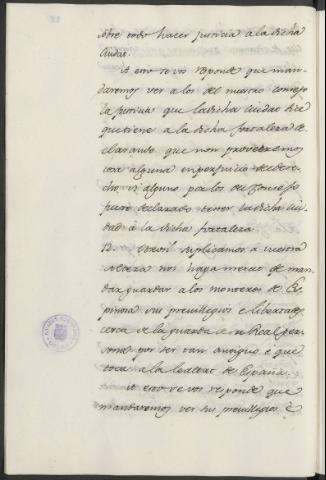 sobre todo hacer justicia a la dicha
ciudad.
A esto se vos responde que man-
daremos ver a los del nuestro consejo
la justicia que la dicha ciudad dice
que tiene a la dicha fortaleza de-
clarando que non proveeremos
cosa alguna en perjuicio del dere-
cho si alguno por los del Consejo
fuere declarado tener la dicha ciu-
dad à la dicha fortaleza
12. Otrosi suplicamos a vuestra
Alteza nos haga merced de man-
dar guardar a los monteros de Es-
pinosa sus previllegios e libertades
cerca de la guarda de su Real per-
sona por ser tan antiguo è que
toca a la lealtat de España.
A esto se vos responde que
mandaremos ver sus previllegios è